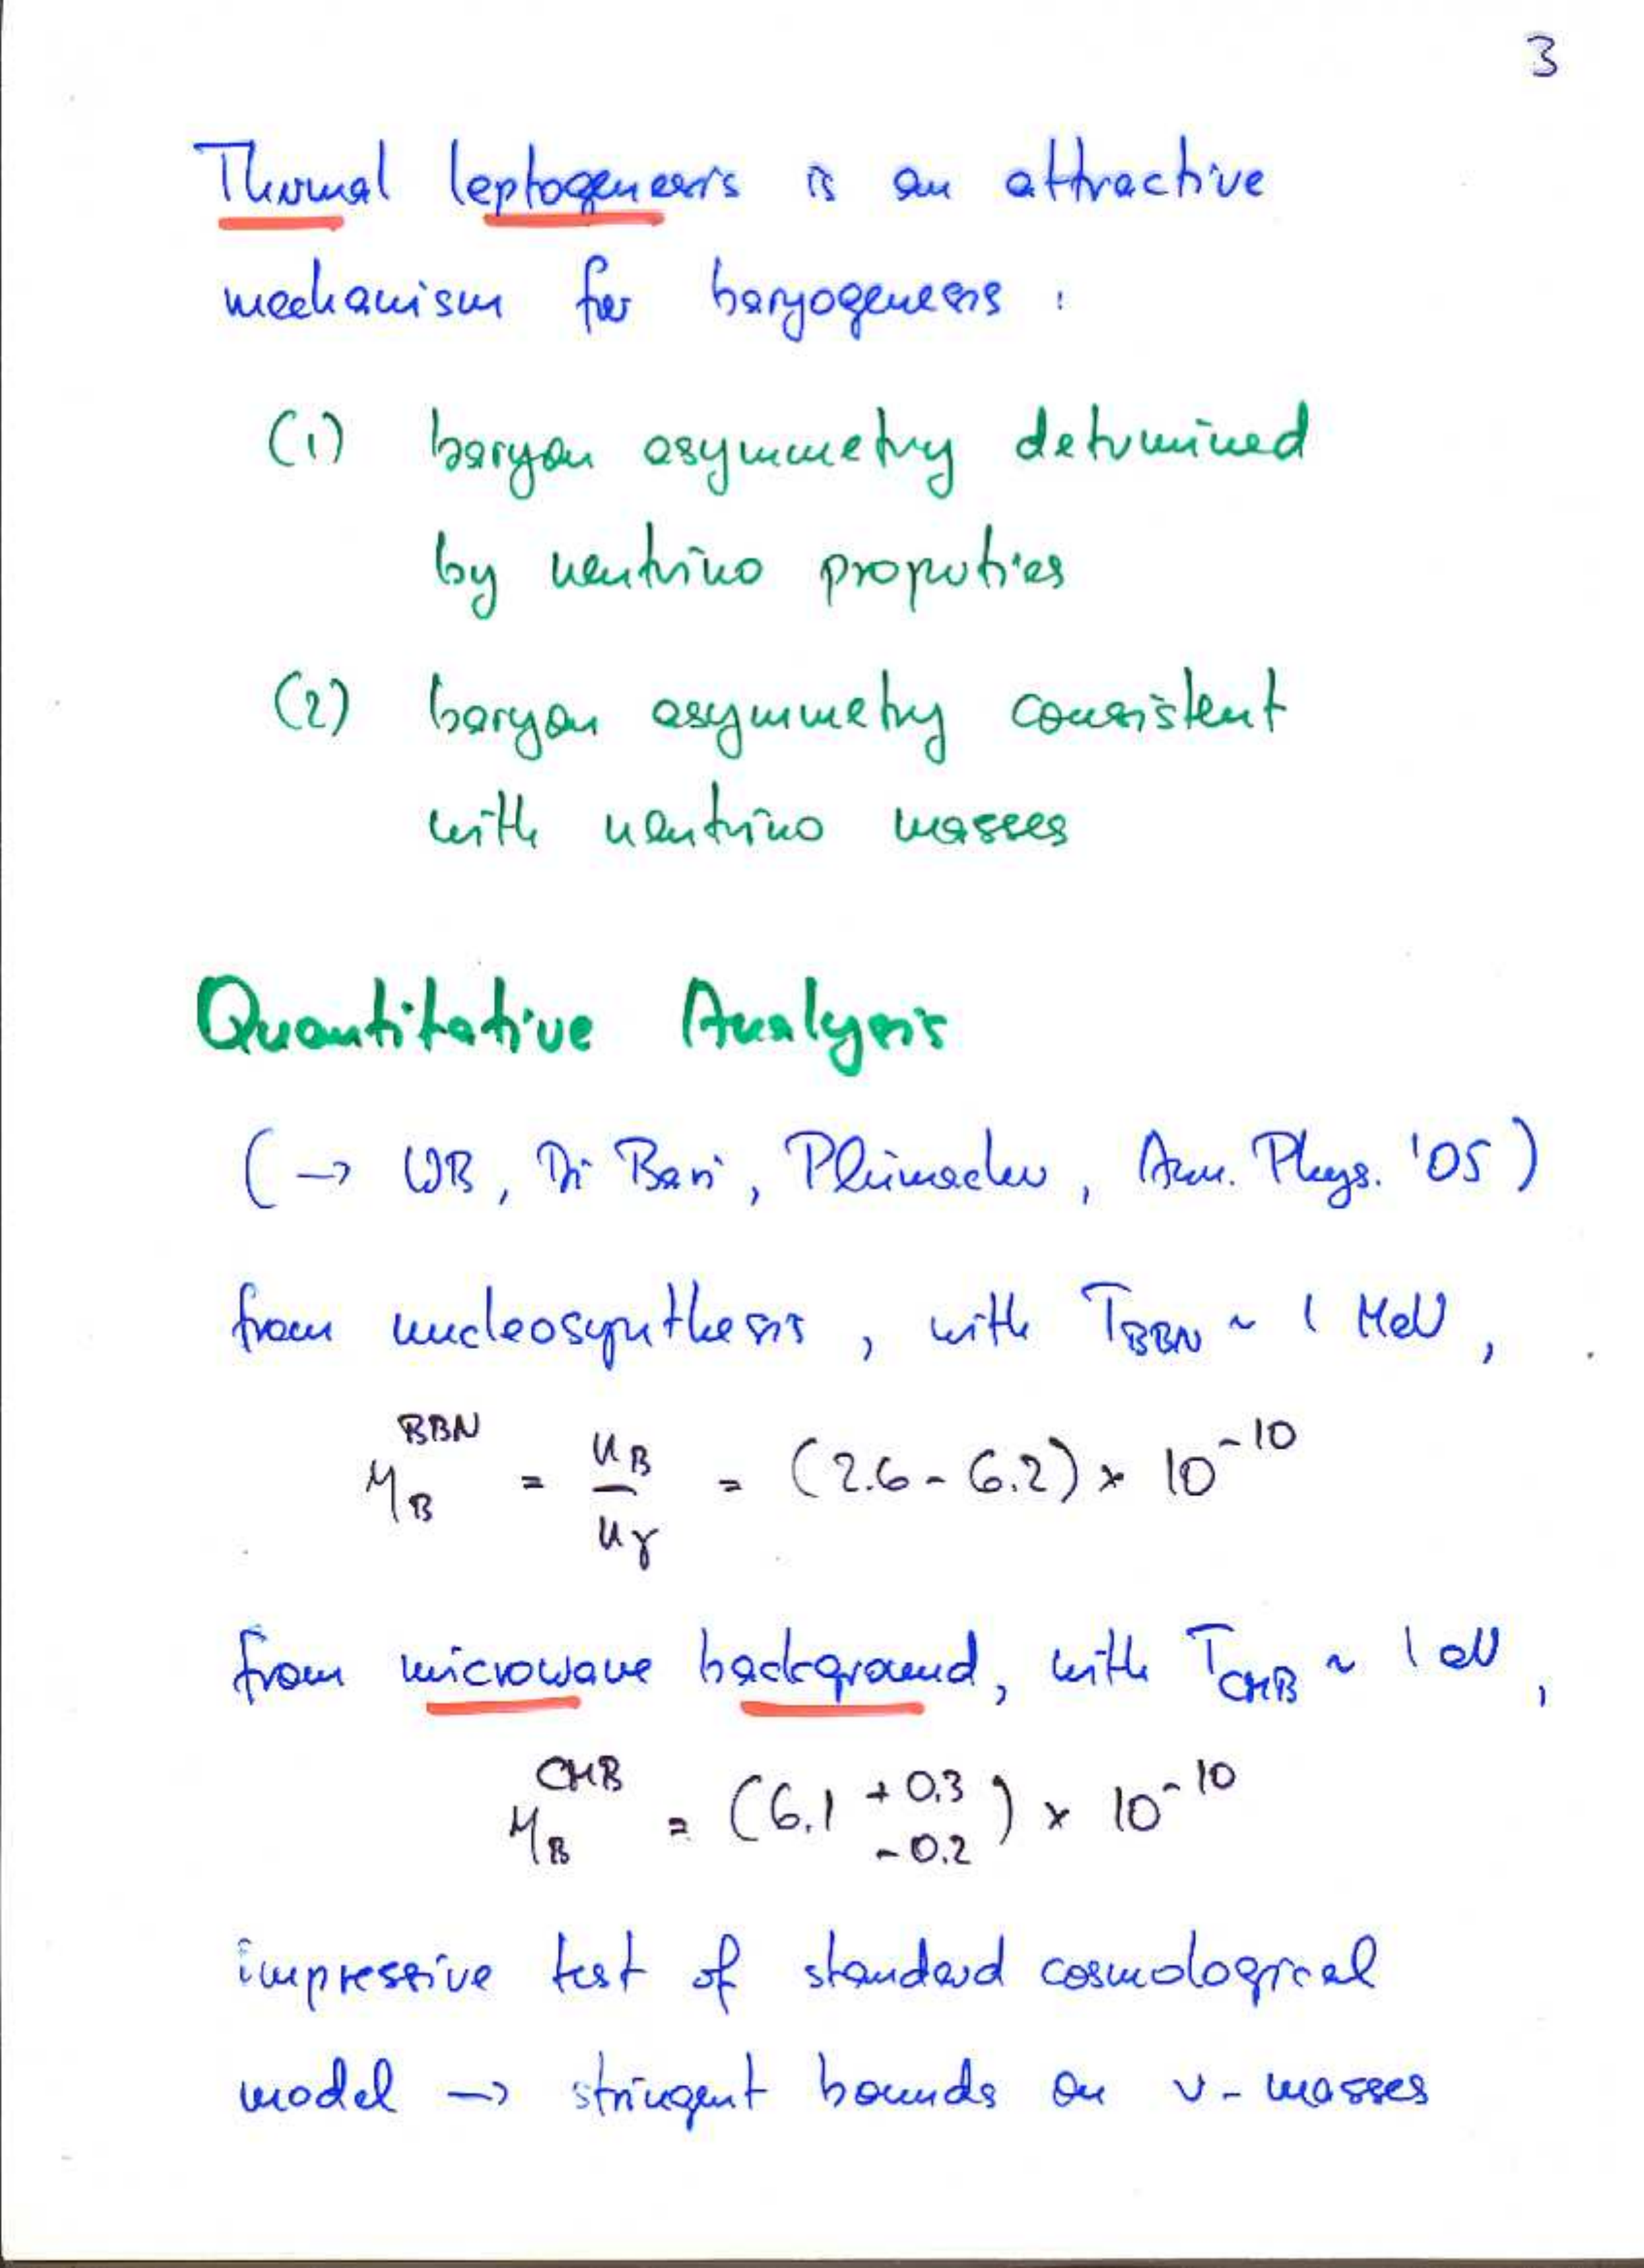 3
Thermal leptogenesis is an attractive
mechanism for baryogenesis :
(1) baryon asymmetry determined
by neutrino properties
(2) baryon asymmetry consistent
with neutrino masses
Quantitative Analysis
(→ WB, Di Bari, Plümacher, Ann. Phys. '05)
from nucleosynthesis, with T_BBN ~ 1 MeV,
η_B^BBN = n_B / n_γ = (2.6 - 6.2) × 10^-10
from microwave background, with T_CMB ~ 1 eV,
η_B^CMB = (6.1 +0.3 -0.2) × 10^-10
impressive test of standard cosmological
model → stringent bounds on ν-masses